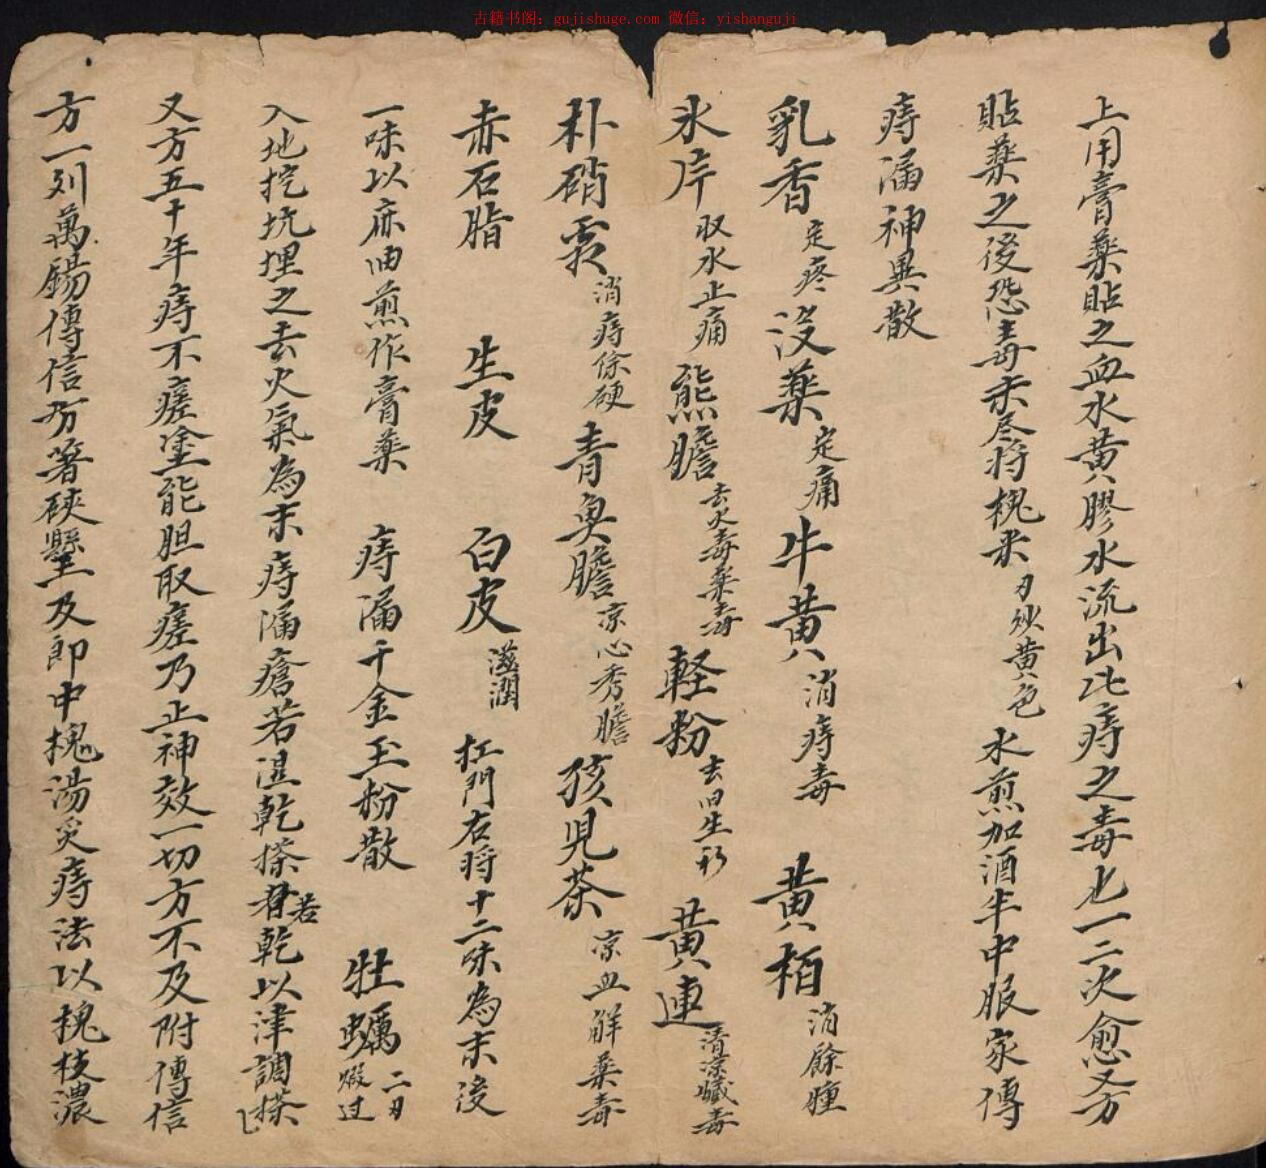 古籍书阁：gujishuge.com 微信：yishanguji
上用膏藥貼之血水黄膠水流出此痔之毒也一二次愈又方
貼藥之後恐毒未尽将槐米刃炒黄色水煎加酒半中服家傳
痔漏神異散
乳香定疼没藥定痛牛黄消痔毒黄栢消餘腫
氷片収水止痛熊膽去火毒藥毒軽粉去旧生新黄連清凉臟毒
朴硝霜消痔除硬青魚膽凉心秀膽孩児茶凉血解藥毒
赤石脂生皮白皮滋潤扛門右将十二味為末後
一味以麻油煎作膏藥痔漏千金玉粉散牡蠣二刃煅过
入地挖坑埋之去火氣為末痔漏瘡若湿乾搽若乾以津調搽
又方五十年痔不瘥塗熊胆取瘥乃止神效一切方不及附傳信
方一列萬錫傳信方箸硤壂及郎中槐湯炙痔法以槐枝濃